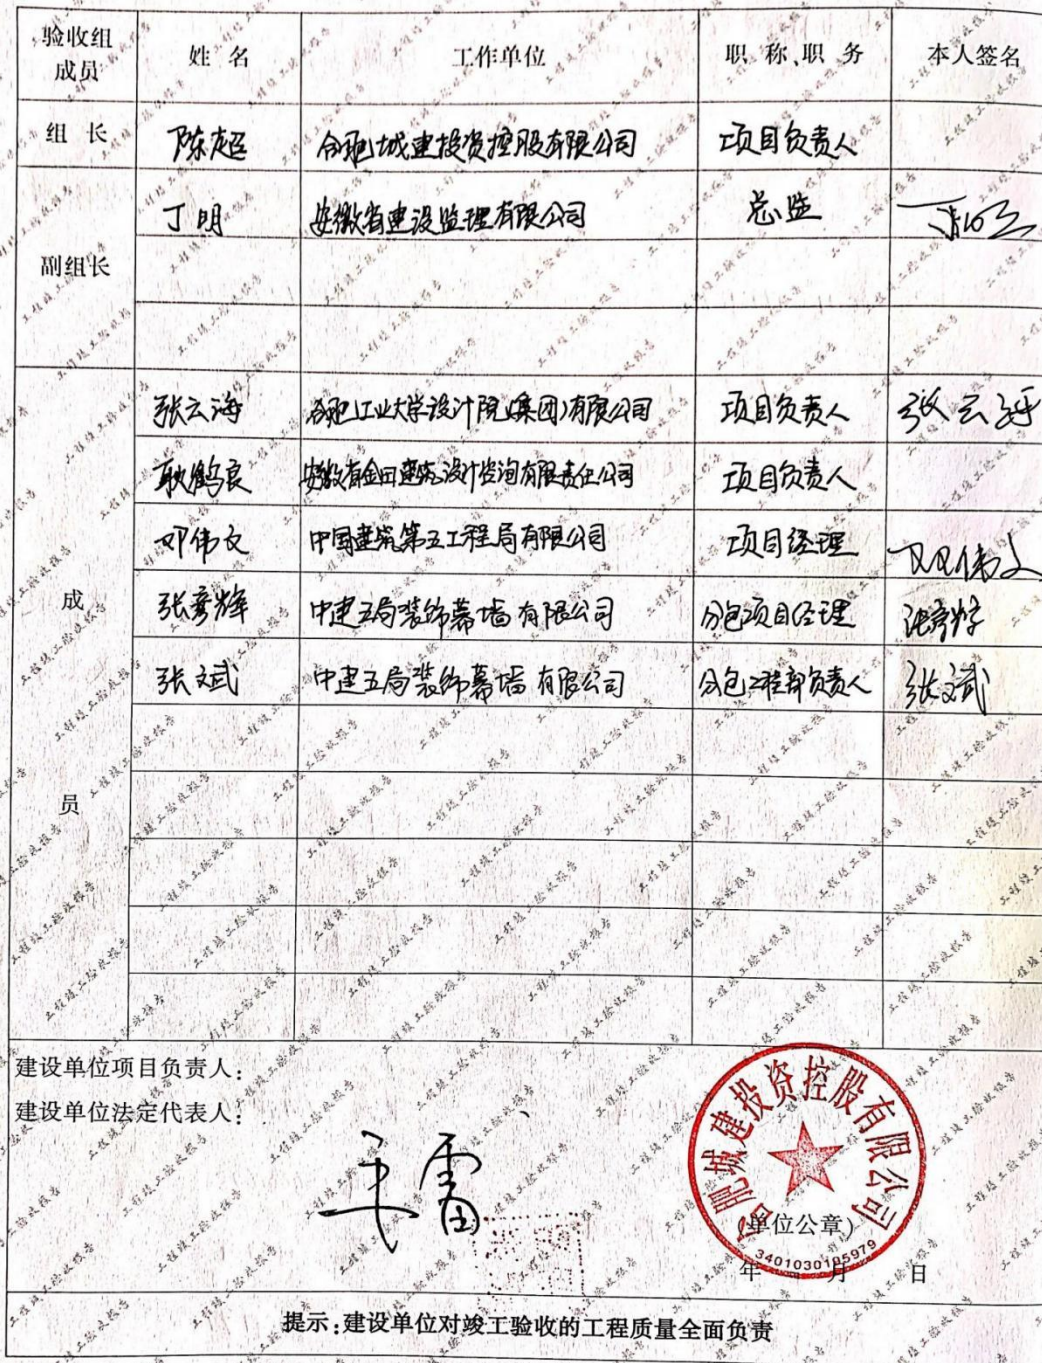 验收组成员 姓 名 工作单位 职 称、职 务 本人签名
组 长 陈超 合肥城建投资控股有限公司 项目负责人
副组长 丁明 安徽省建设监理有限公司 总监
张云海 合肥工业大学设计院(集团)有限公司 项目负责人 张云海
耿鹤良 安徽省金田建筑设计咨询有限责任公司 项目负责人
邓伟文 中国建筑第五工程局有限公司 项目经理 邓伟文
成 张彦辉 中建五局装饰幕墙有限公司 分包项目经理 张彦辉
张文斌 中建五局装饰幕墙有限公司 分包工程部负责人 张文斌
员
建设单位项目负责人:
建设单位法定代表人:
合肥城建投资控股有限公司
(单位公章)
年 月 日
提示:建设单位对竣工验收的工程质量全面负责
工程竣工验收报告